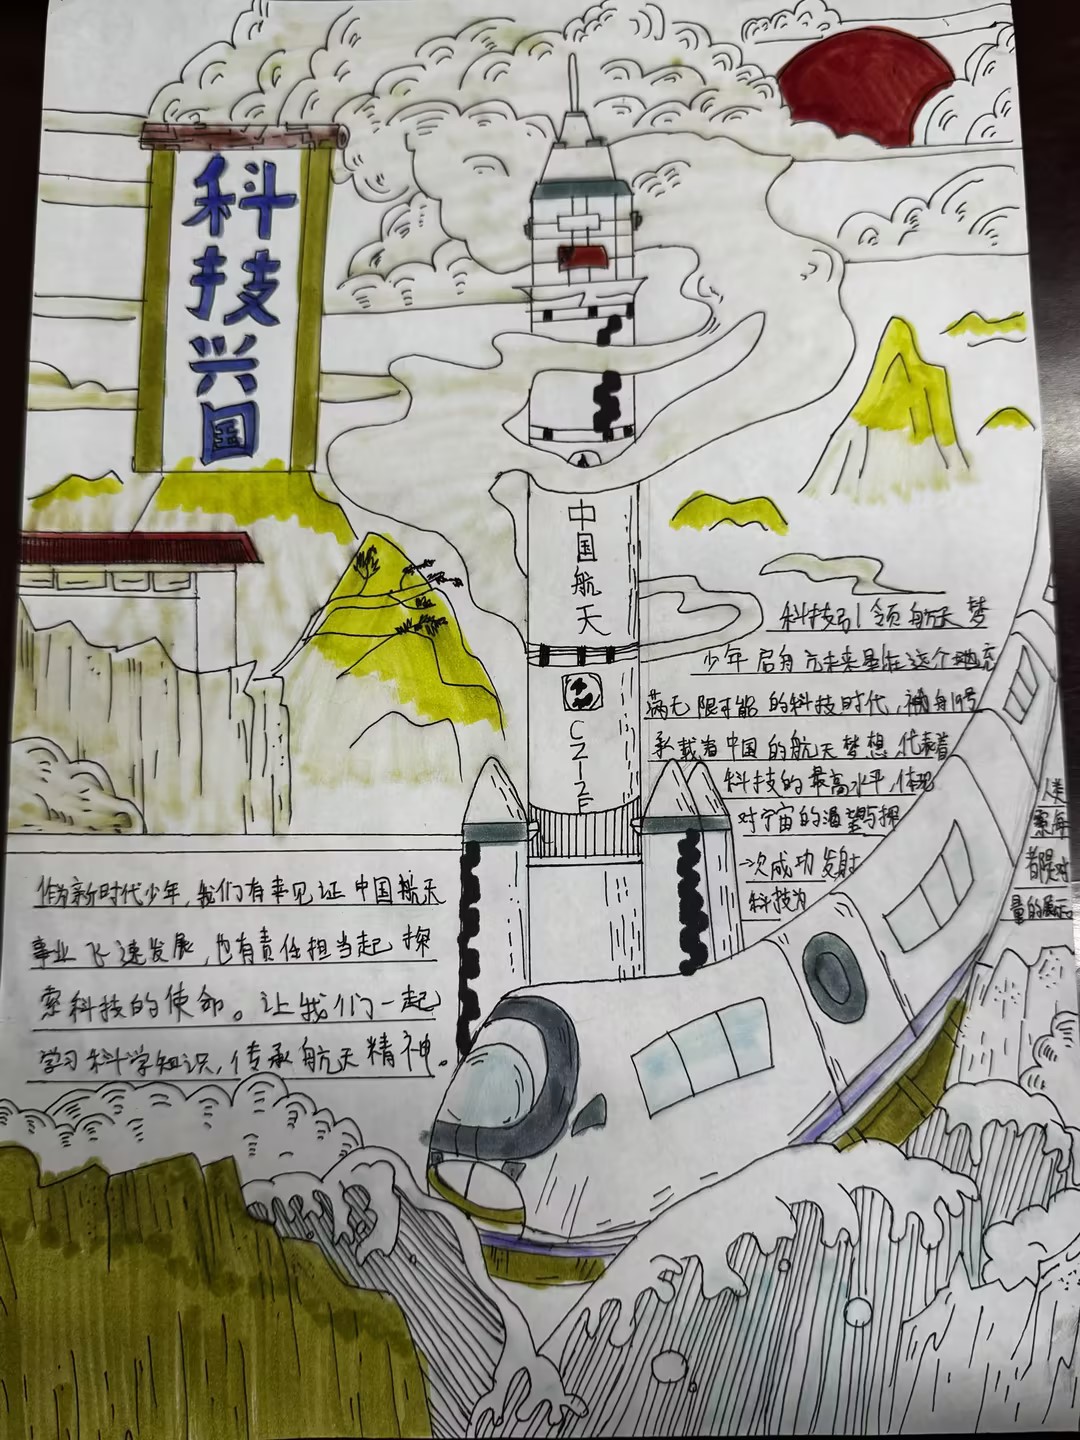 科技兴国
中国航天
CZ-2F
科技引领航天梦
少年启舟亢未来星在这个地充
满无限可能的科技时代,神舟19号
承载着中国的航天梦想,代表着
科技的最高水平,体现 人类
对宇宙的渴望与探 索每
一次成功发射 都是对
科技力 量的展示。
作为新时代少年,我们有幸见证中国航天
事业飞速发展,也有责任担当起探
索科技的使命。让我们一起
学习科学知识,传承航天精神。